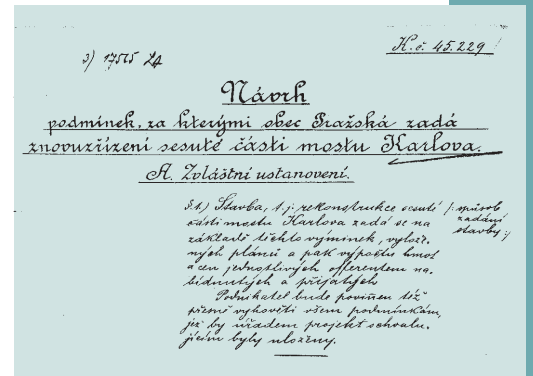 K. č. 45.229
3) 17515
Návrh
podmínek, za kterými obec Pražská zadá
znovuzřízení sesuté části mostu Karlova.
A. Zvláštní ustanovení.
§ 1.) Stavba, t. j. rekonstrukce sesuté
části mostu Karlova zadá se na
základě těchto výminek, vylož-
ných plánů a pak výpočtu hmot
a cen jednotlivých offerentem na-
bídnutých a přijatých
Podnikatel bude povinen též
přesně vyhověti všem podmínkám,
jež by úřadem projekt schvalu-
jícím byly uloženy.
/: způsob
zadání
stavby :/